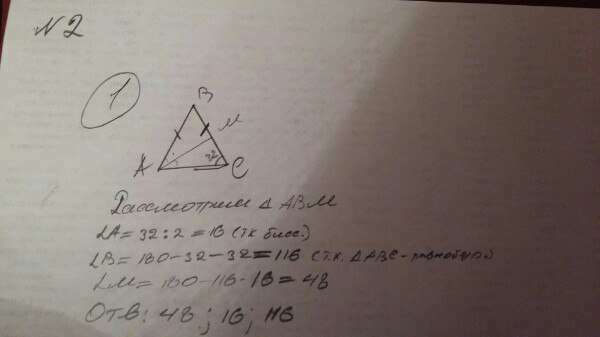 N2
1
B
M
A 32 C
Рассмотрим Δ ABM
∠A = 32 : 2 = 16 (тк бисс.)
∠B = 180 - 32 - 32 = 116 (т.к. ΔABC - равнобед
∠M = 180 - 116 - 16 = 48
Отв: 48 ; 16 ; 116